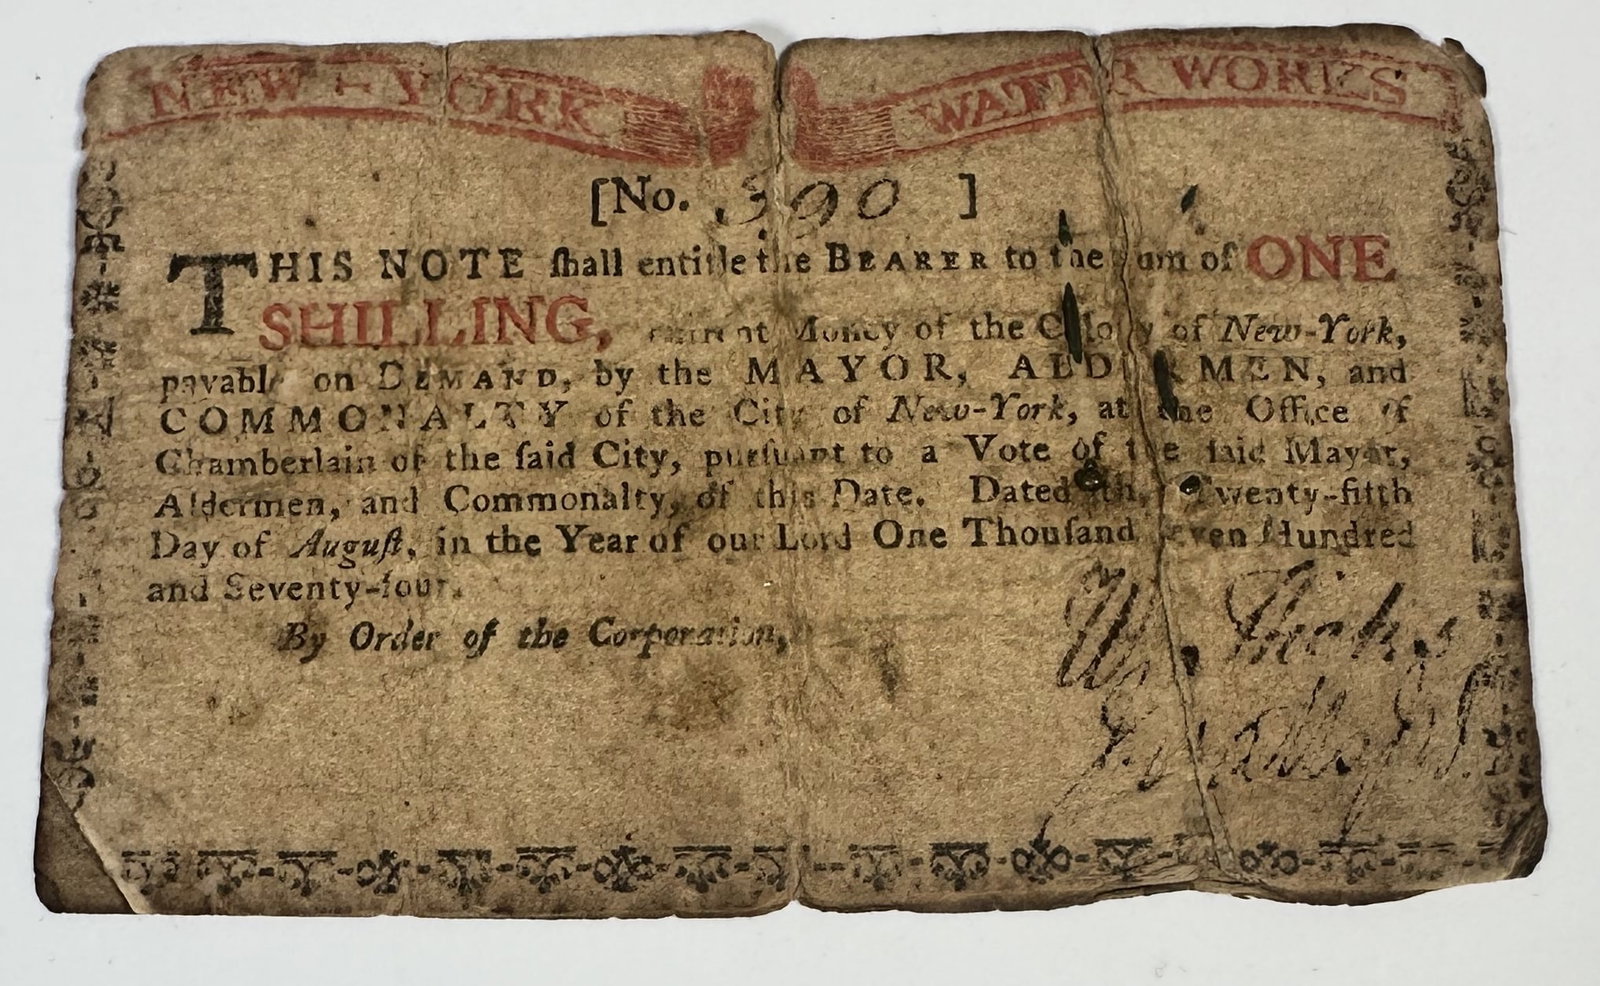 NEW-YORK WATER WORKS
[No. 390 ]
THIS NOTE ſhall entitle the BEARER to the ſum of ONE
SHILLING, current Money of the Colony of New-York,
payable on DEMAND, by the MAYOR, ALDERMEN, and
COMMONALTY of the City of New-York, at the Office of
Chamberlain of the ſaid City, purſuant to a Vote of the ſaid Mayor,
Aldermen, and Commonalty, of this Date. Dated the Twenty-fifth
Day of Auguſt, in the Year of our Lord One Thouſand Seven Hundred
and Seventy-four.
By Order of the Corporation,